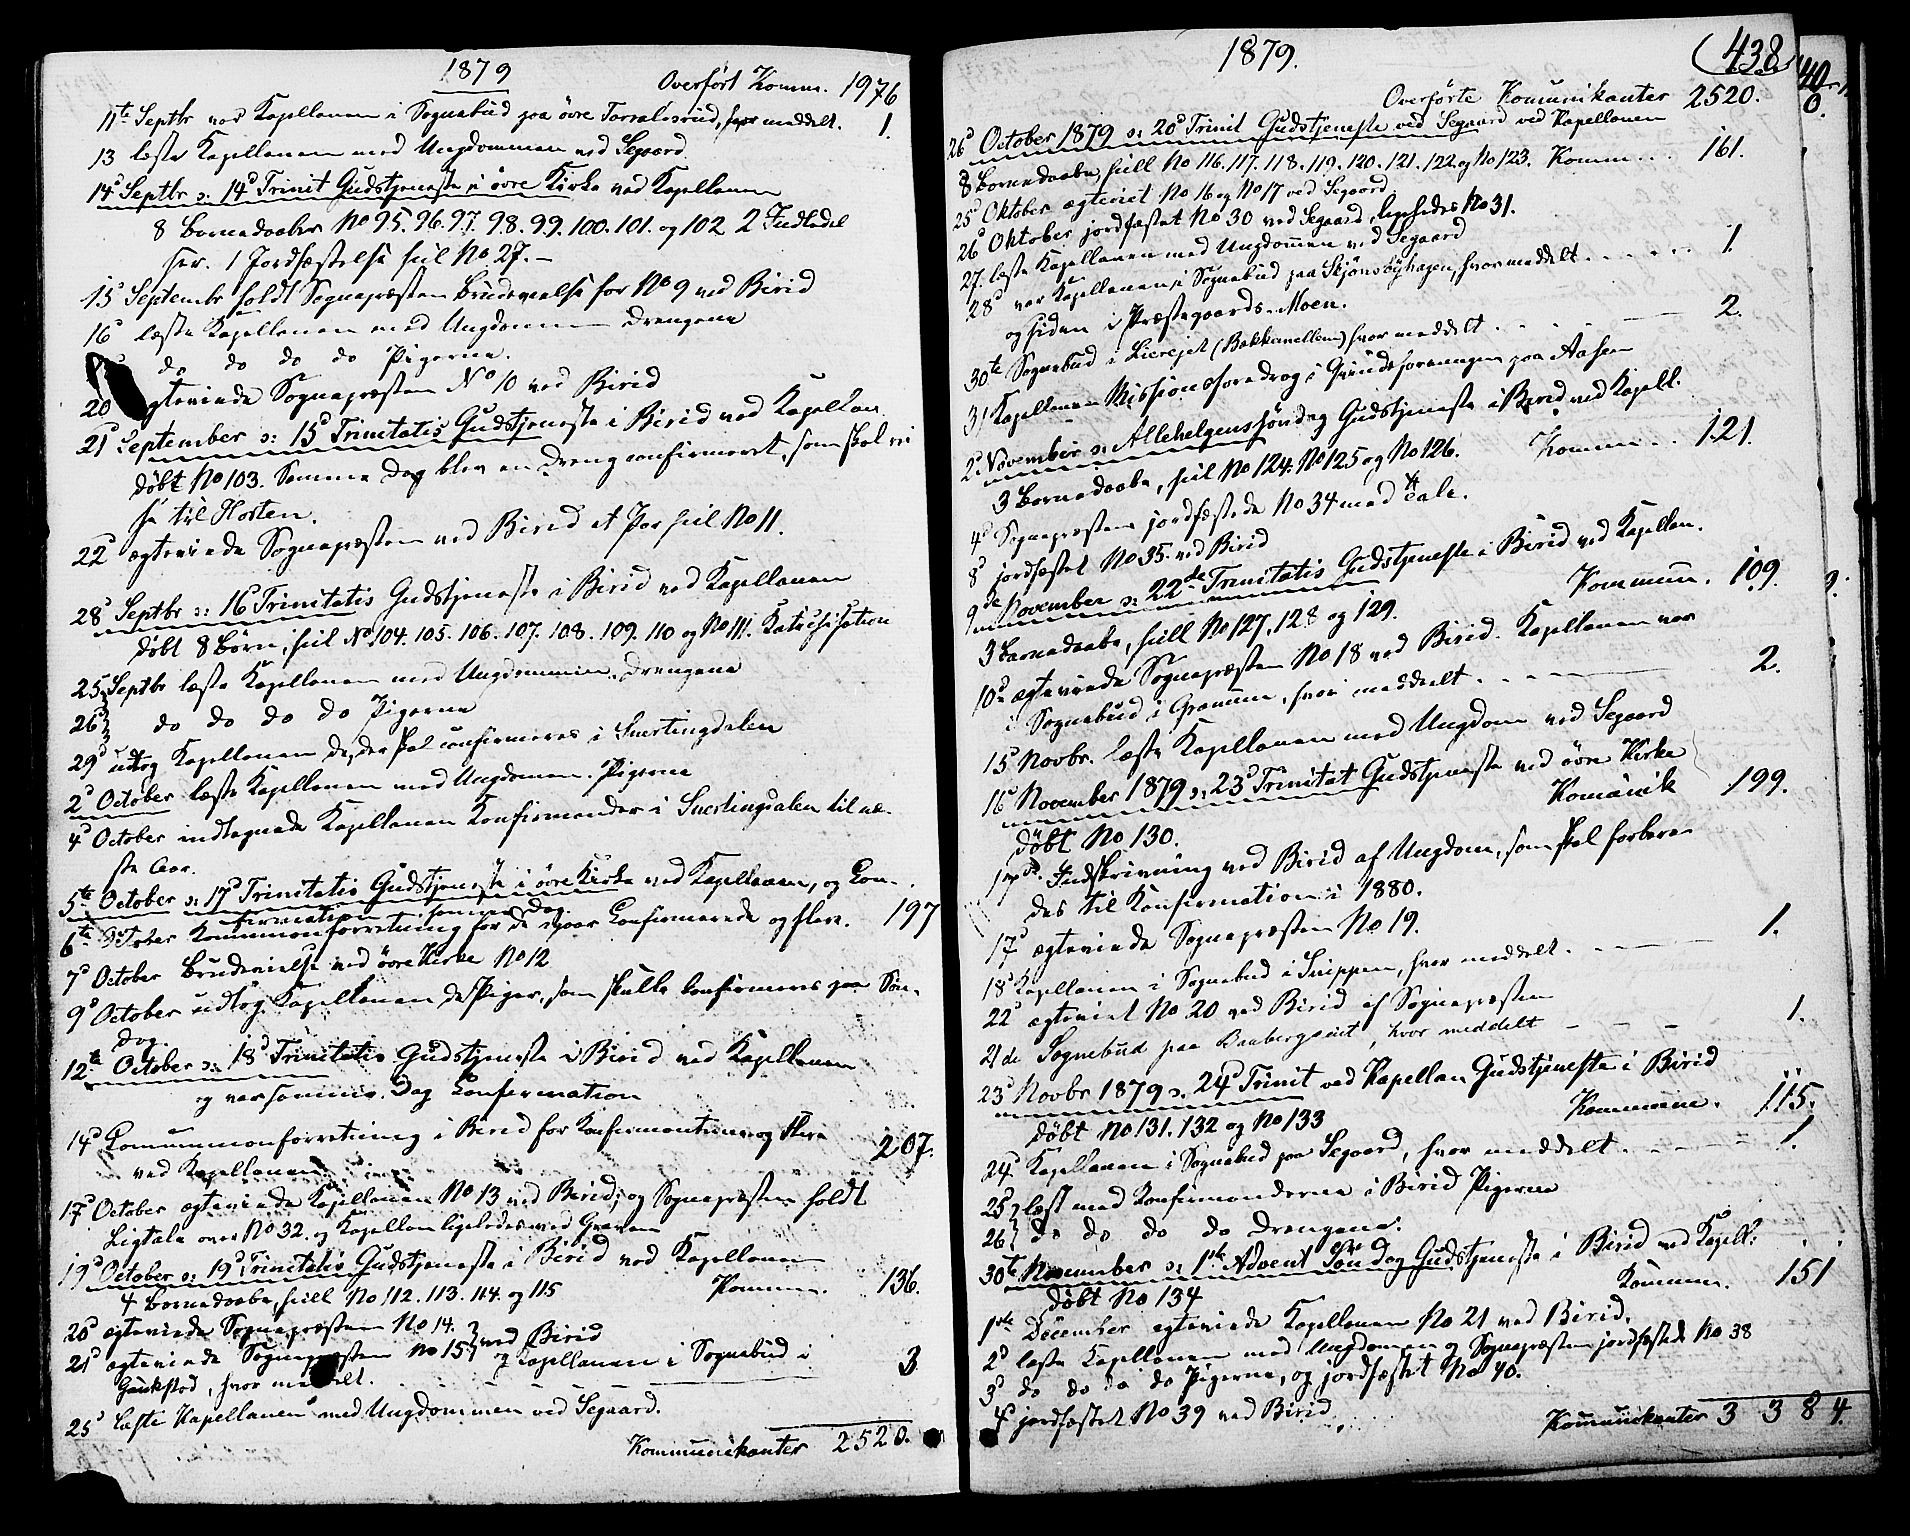 1879
Overført Komm. 1976
11te Septbr var Kapellanen i Sognebud paa øvre meddelt. 1.
13 læste Kapellanen med Ungdommen ved Segaard
14d Septbr ɔ: 14d Trinit Gudstjeneste i øvre Kirke ved Kapellanen
8 Barnedaaber No 95. 96. 97. 98. 99. 100. 101. og 102 2 Indledel
ser. 1 Jordfæstelse hiil No 27. –
15d Septembr holdt Sognepræsten Brudevielse for No 9 ved Birid
16d læste Kapellanen med Ungdommen Drengene
do do do do Pigerne.
20 ægteviede Sognepræsten No 10 ved Birid
21d September ɔ: 15d Trinitatis Gudstjeneste i Birid ved Kapellan
døbt No 103. Samme Dag blev en Dreng confirmeret, som skal rei
se til Horten.
22d ægteviede Sognepræsten ved Birid et Par hiil No 11.
28d Septbr ɔ: 16d Trinitatis Gudstjeneste i Birid ved Kapellanen
døbt 8 Børn, hiil No 104. 105. 106. 107. 108. 109. 110 og No 111. Katechisation
25d Septbr læste Kapellanen med Ungdommen. Drengene
26d do do do do Pigerne
29d udtog Kapellanen de, der skal confirmeres i Snertingdalen
2d October læste Kapellanen med Ungdommen. Pigerne
4d October indtegnede Kapellanen Konfirmander i Snertingdalen til næ-
ste Aar.
5te October ɔ: 17d Trinitatis Gudstjeneste i øvre Kirke ved Kapellanen, og Con-
firmation samme Dag.
6te October Kommunionforretning for de igaar Confirmerede og flere. 197
7d October Brudevielse ved øvre Kirke No 12
9d October udtog Kapellanen de Piger, som skulle confirmeres paa Søn-
dag.
12te October ɔ: 18d Trinitatis Gudstjeneste i Birid ved Kapellanen
og var samme Dag Confirmation
14d Communionforretning i Birid for Konfirmanterne og flere 207.
ved Kapellanen
17d October ægteviede Kapellanen No 13 ved Birid, og Sognepræsten holdt
Ligtale over No 32. og Kapellan ligeledes ved Graven
19d October ɔ: 19d Trinitatis Gudstjeneste i Birid ved Kapellanen
4 Barnedaabe, hiill No 112. 113. 114. og 115 Kommun. 136.
20d ægteviede Sognepræsten No 14. } ved Birid
21d ægteviede Sognepræsten No 15 } Kapellanen i Sognebud i
Gaukstad, hvor meddelt. 3
25d læste Kapellanen med Ungdommen ved Segaard.
Kommunikanter 2520.
1879.
438
Overførte Komunikanter 2520.
26d October 1879 ɔ: 20d Trinit Gudstjeneste ved Segaard ved Kapellanen
8 Barnedaabe, hiill No 116. 117. 118. 119. 120. 121. 122 og No 123. Komm... 161.
25d Oktober ægteviet No 16 og No 17 ved Segaard.
26d Oktober jordfæstet No 30 ved Segaard, ligeledes No 31.
27. læste Kapellanen med Ungdommen ved Segaard
28d var Kapellanen i Sognebud paa Skjønsbyhagen, hvor meddelt ...... 1
og siden i Præstegaards-Moen.
30te Sognebud i Liereiet (Bakkemellem) hvor meddelt . . . . 2.
31 Kapellanen Missionsforedrag i Qvindeforeningen paa Aasen
2d November ɔ: Allehelgenssøndag Gudstjeneste i Birid ved Kapell.
3 Barnedaabe, hiil No 124. No 125 og No 126. Komm... 121.
4d Sognepræsten jordfæstede No 34 med Tale.
8d jordfæstet No 35. ved Birid
9de November ɔ: 22de Trinitatis Gudstjeneste i Birid ved Kapellan.
3 Barnedaabe, hiill No 127, 128 og 129. Kommun. 109.
10d ægteviede Sognepræsten No 18 ved Birid. Kapellanen var
i Sognebud i Gramme, hvor meddelt. . . . 2.
15d Novbr. læste Kapellanen med Ungdom ved Segaard
16d November 1879 ɔ: 23d Trinitat Gudstjeneste ved øvre Kirke
døbt No 130. Komunik 199.
17d. Indskrivning ved Birid af Ungdom, som skal forbere-
des til Konfirmation i 1880.
17d ægteviede Sognepræsten No 19.
18d Kapellanen i Sognebud i Snippen, hvor meddelt. . . 1.
22d ægteviet No 20 ved Birid af Sognepræsten
21de Sognebud paa, hvor meddelt – – – 1.
23d Novbr 1879 ɔ: 24d Trinit ved Kapellan Gudstjeneste i Birid
døbt No 131. 132 og No 133 Kommune. 115.
24d Kapellanen i Sognebud paa Segaard, hvor meddelt. . . 1.
25d læst med Konfirmanderne i Birid Pigerne
26d do do do do Drengene.
30te November ɔ: 1ste Advent Søndag Gudstjeneste i Birid ved Kapell:
døbt No 134 Kommun. 151
1ste December ægteviede Kapellanen No 21 ved Birid.
2d læste Kapellanen med Ungdommen og Sognepræsten jordfæstede No 38
3d do do do do Pigerne, og jordfæstet No 40.
4 jordfæstet No 39 ved Birid
Kommunikanter 3384.